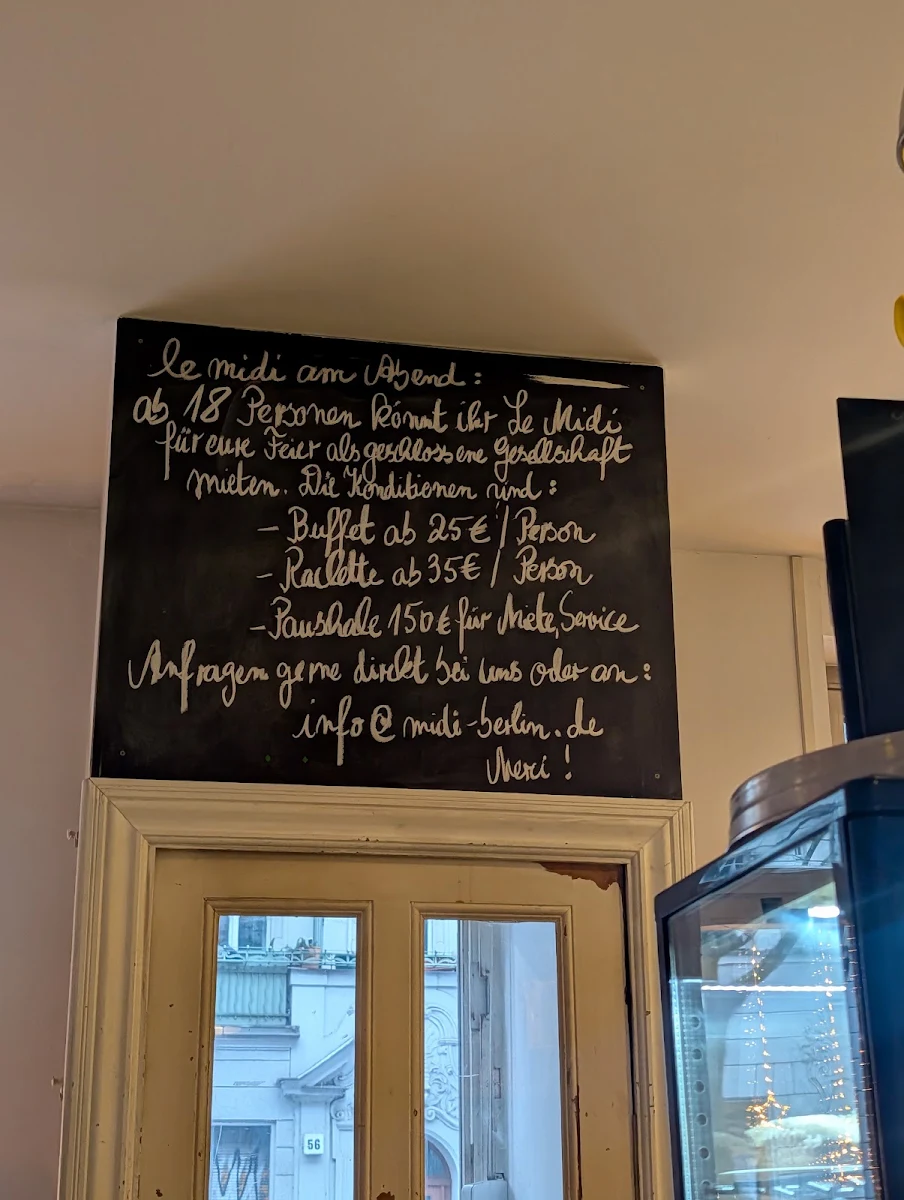 le midi am Abend:
ab 18 Personen könnt ihr Le Midi
für eure Feier als geschlossene Gesellschaft
mieten. Die Konditionen sind:
- Buffet ab 25€ / Person
- Raclette ab 35€ / Person
- Paushale 150€ für Miete, Service
Anfragen gerne direkt bei uns oder an:
info@midi-berlin.de
Merci!
56